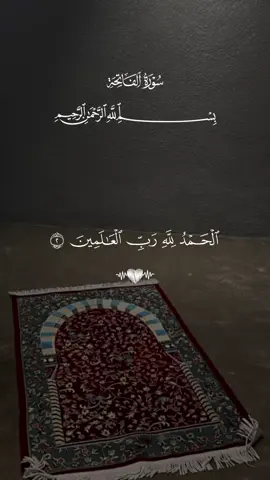 سُورَةُ ٱلْفَاتِحَةِ
بِسْمِ ٱللَّهِ ٱلرَّحْمَٰنِ ٱلرَّحِيمِ
ٱلْحَمْدُ لِلَّهِ رَبِّ ٱلْعَٰلَمِينَ ٢